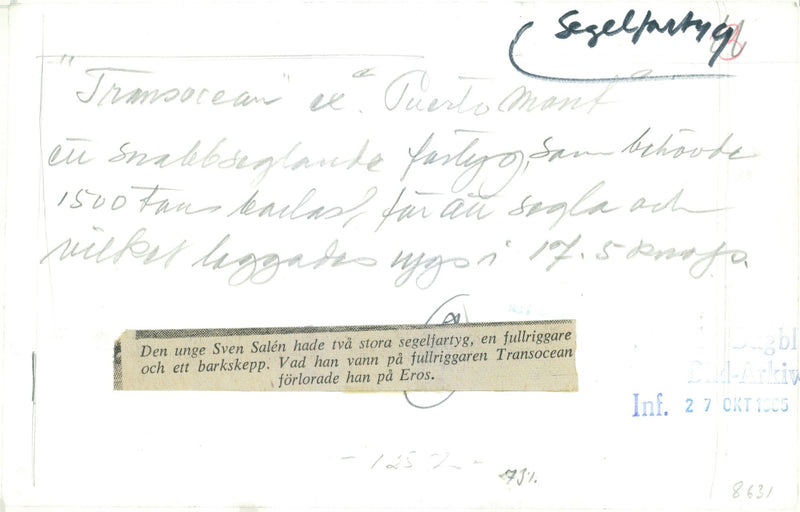 Segelfartyg
"Transocean" ex. Puerto Mont
ett snabbseglande fartyg, som behövde
1500 tons barlast, för att segla och
vilket loggades upp i 17.5 knop.
Den unge Sven Salén hade två stora segelfartyg, en fullriggare
och ett barkskepp. Vad han vann på fullriggaren Transocean
förlorade han på Eros.
Dagbl
Bild-Arkiv
Inf. 27 OKT 1965
- 125 % -
73%.
8631